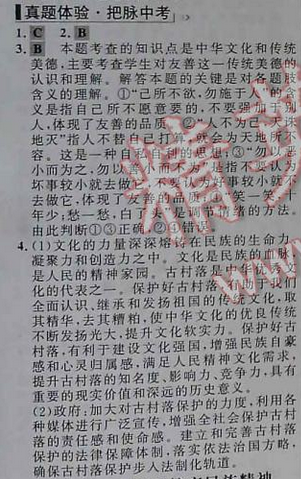 真题体验·把脉中考
1. C  2. B
3. B  本题考查的知识点是中华文化和传统
美德,主要考查学生对友善这一传统美德的
认识和理解。解答本题的关键是对各题肢
含义的理解。①“己所不欲,勿施于人”的含
义是指自己所不愿意要的,不要强加于别
人,体现了友善的品质。②“人不为己,天诛
地灭”指人不替自己打算,就会为天地所不
容。这是一种自私自利的思想;③“勿以善
小而为之,
坏事较小就去做它,不要认为好事较小就不
去做它,体现了友善的品质。④“笑一笑,十
年少;愁一愁,白了头”是调节情绪的方法。
由此判断①③正确,②④错误。
4. (1)文化的力量深深熔铸在民族的生命力、
凝聚力和创造力之中。文化是民族的血脉,
是人民的精神家园。古村落是
化的代表之一。保护好古村落,有助于我们
全面认识、继承和发扬祖国的传统文化,取
其精华,去其糟粕,使中华文化的优良传统
不断发扬光大,提升文化软实力。保护好古
村落,有利于建设文化强国,增强民族自豪
感和心灵归属感,满足人民精神文化需求,
提升古村落的知名度、影响力、竞争力,具有
重要的现实价值和深远的历史意义。
(2)政府:加大对古村落保护的力度,利用各
种媒体进行广泛宣传,增强全社会保护古村
落的责任感和使命感。建立和完善古村落
保护的法律保障体制,落实依法治国方略,
确保古村落保护步入法制化轨道。